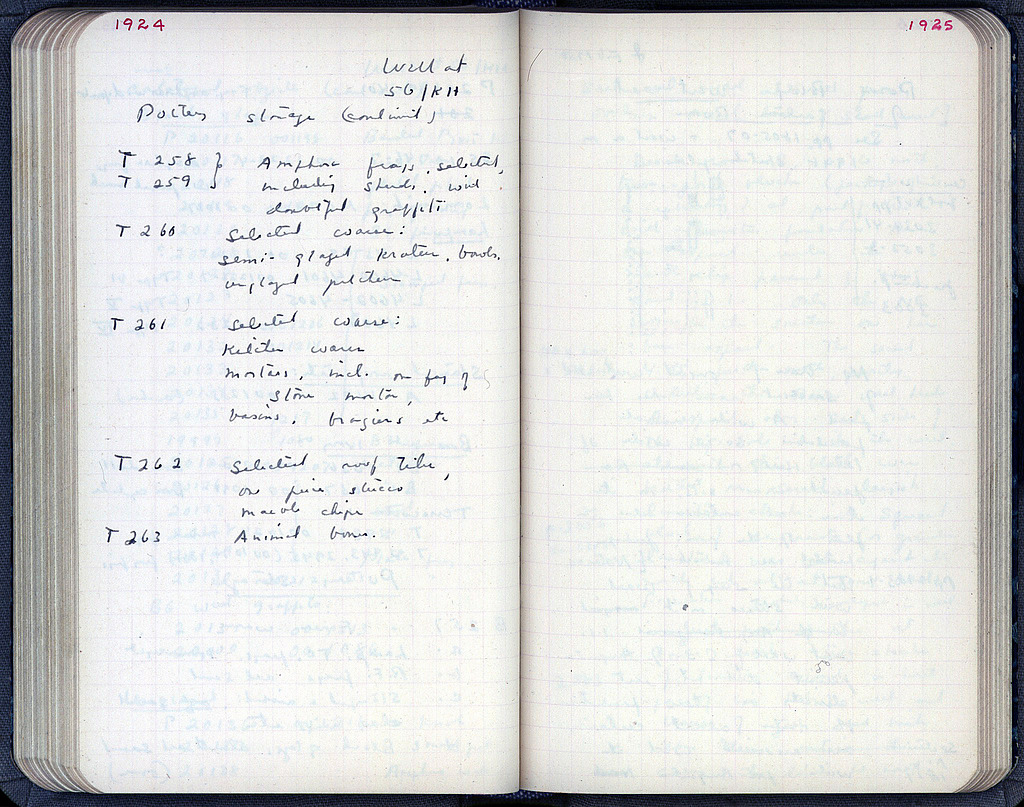 1924
Well at
56/KH
Pottery storage (continued)
T 258 } Amphora frags, selected,
T 259 } including sherds with
doubtful graffiti
T 260 Selected coarse:
semi-glazed krater, bowls,
unglazed pitcher
T 261 Selected coarse:
Kitchen wares
mortars, incl. one frag of
stone mortar,
basins, braziers etc
T 262 Selected roof tile,
one piece stucco
marble chips
T 263 Animal bones.
1925